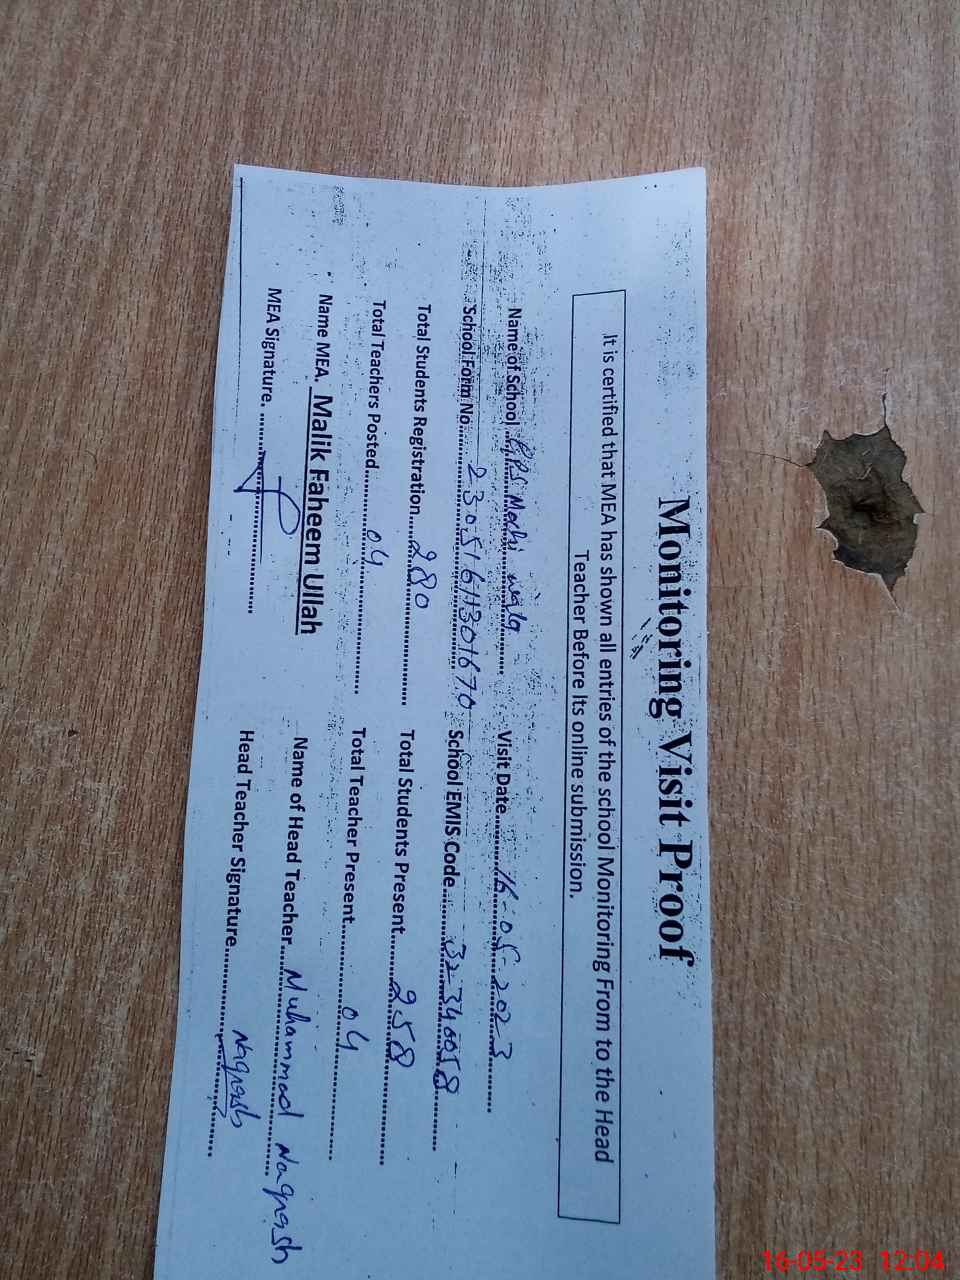 Monitoring Visit Proof
It is certified that MEA has shown all entries of the school Monitoring From to the Head
Teacher Before Its online submission.
Name of School GPS Mochi wala Visit Date 16-05-2023
School Form No 23051611301670 School EMIS Code 32340058
Total Students Registration 280 Total Students Present 258
Total Teachers Posted 04 Total Teacher Present 04
Name MEA. Malik Faheem Ullah Name of Head Teacher Muhammad Naqash
MEA Signature. Head Teacher Signature Naqash
16-05-23 12:04